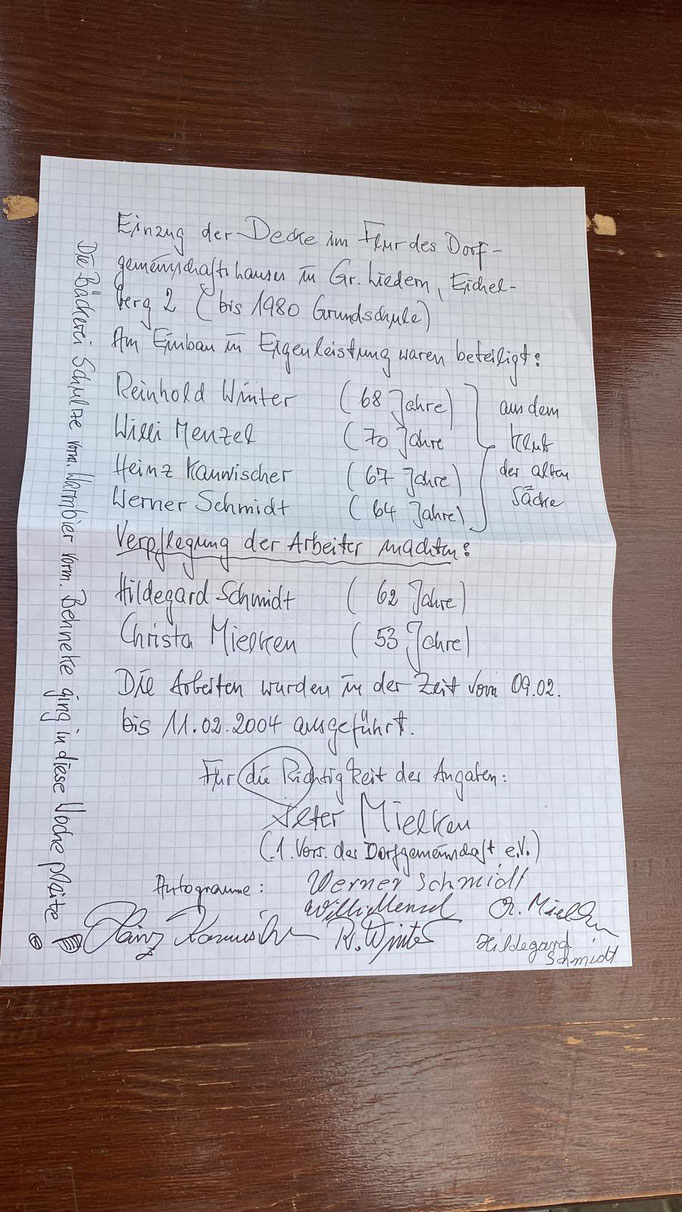 Einzug der Decke im Flur des Dorf-
gemeinschaftshauses in Gr. Liedern, Eichel-
berg 2 (bis 1980 Grundschule)
Am Einbau in Eigenleistung waren beteiligt:
Reinhold Winter (68 Jahre) aus dem
Willi Menzel (70 Jahre Klub
Heinz Kanwischer (67 Jahre) der alten
Werner Schmidt (64 Jahre) Säcke
Verpflegung der Arbeiter machten:
Hildegard Schmidt (62 Jahre)
Christa Mielken (53 Jahre)
Die Arbeiten wurden in der Zeit vom 09.02.
bis 11.02.2004 ausgeführt.
Für die Richtigkeit der Angaben:
Peter Mielken
(1. Vors. der Dorfgemeinschaft e.V.)
Autogramme: Werner Schmidt
Willi Menzel Ch. Mielken
Heinz Kanwischer R. Winter Hildegard
Schmidt
Die Bäckerei Schulze vorm. Warmbier vorm. Behneke ging in diese Woche pleite